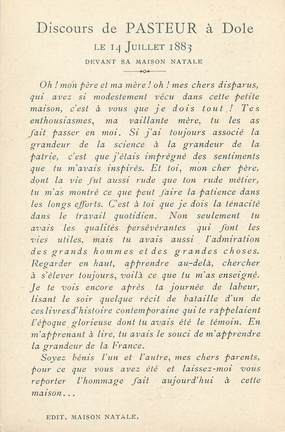 Discours de PASTEUR à Dole
LE 14 JUILLET 1883
DEVANT SA MAISON NATALE
Oh ! mon père et ma mère ! oh ! mes chers disparus,
qui avez si modestement vécu dans cette petite
maison, c'est à vous que je dois tout ! Tes
enthousiasmes, ma vaillante mère, tu les as
fait passer en moi. Si j'ai toujours associé la
grandeur de la science à la grandeur de la
patrie, c'est que j'étais imprégné des sentiments
que tu m'avais inspirés. Et toi, mon cher père,
dont la vie fut aussi rude que ton rude métier,
tu m'as montré ce que peut faire la patience dans
les longs efforts. C'est à toi que je dois la ténacité
dans le travail quotidien. Non seulement tu
avais les qualités persévérantes qui font les
vies utiles, mais tu avais aussi l'admiration
des grands hommes et des grandes choses.
Regarder en haut, apprendre au-delà, chercher
à s'élever toujours, voilà ce que tu m'as enseigné.
Je te vois encore après ta journée de labeur,
lisant le soir quelque récit de bataille d'un de
ces livres d'histoire contemporaine qui te rappelaient
l'époque glorieuse dont tu avais été le témoin. En
m'apprenant à lire, tu avais le souci de m'apprendre
la grandeur de la France.
Soyez bénis l'un et l'autre, mes chers parents,
pour ce que vous avez été et laissez-moi vous
reporter l'hommage fait aujourd'hui à cette
maison...
EDIT. MAISON NATALE.